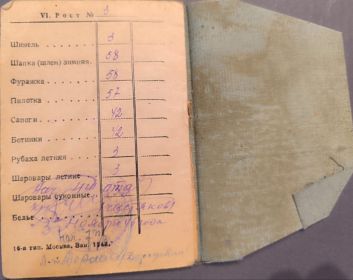 VI. Рост № 3
Шинель . . . . . . . 3
Шапка (шлем) зимняя. 58
Фуражка . . . . . . 58
Пилотка . . . . . . 57
Сапоги . . . . . . . 42
Ботинки . . . . . . 42
Рубаха летняя . . . 3
Шаровары летние . . 3
Шаровары суконные
Белье
16-я тип. Москва, Зак. 1942.